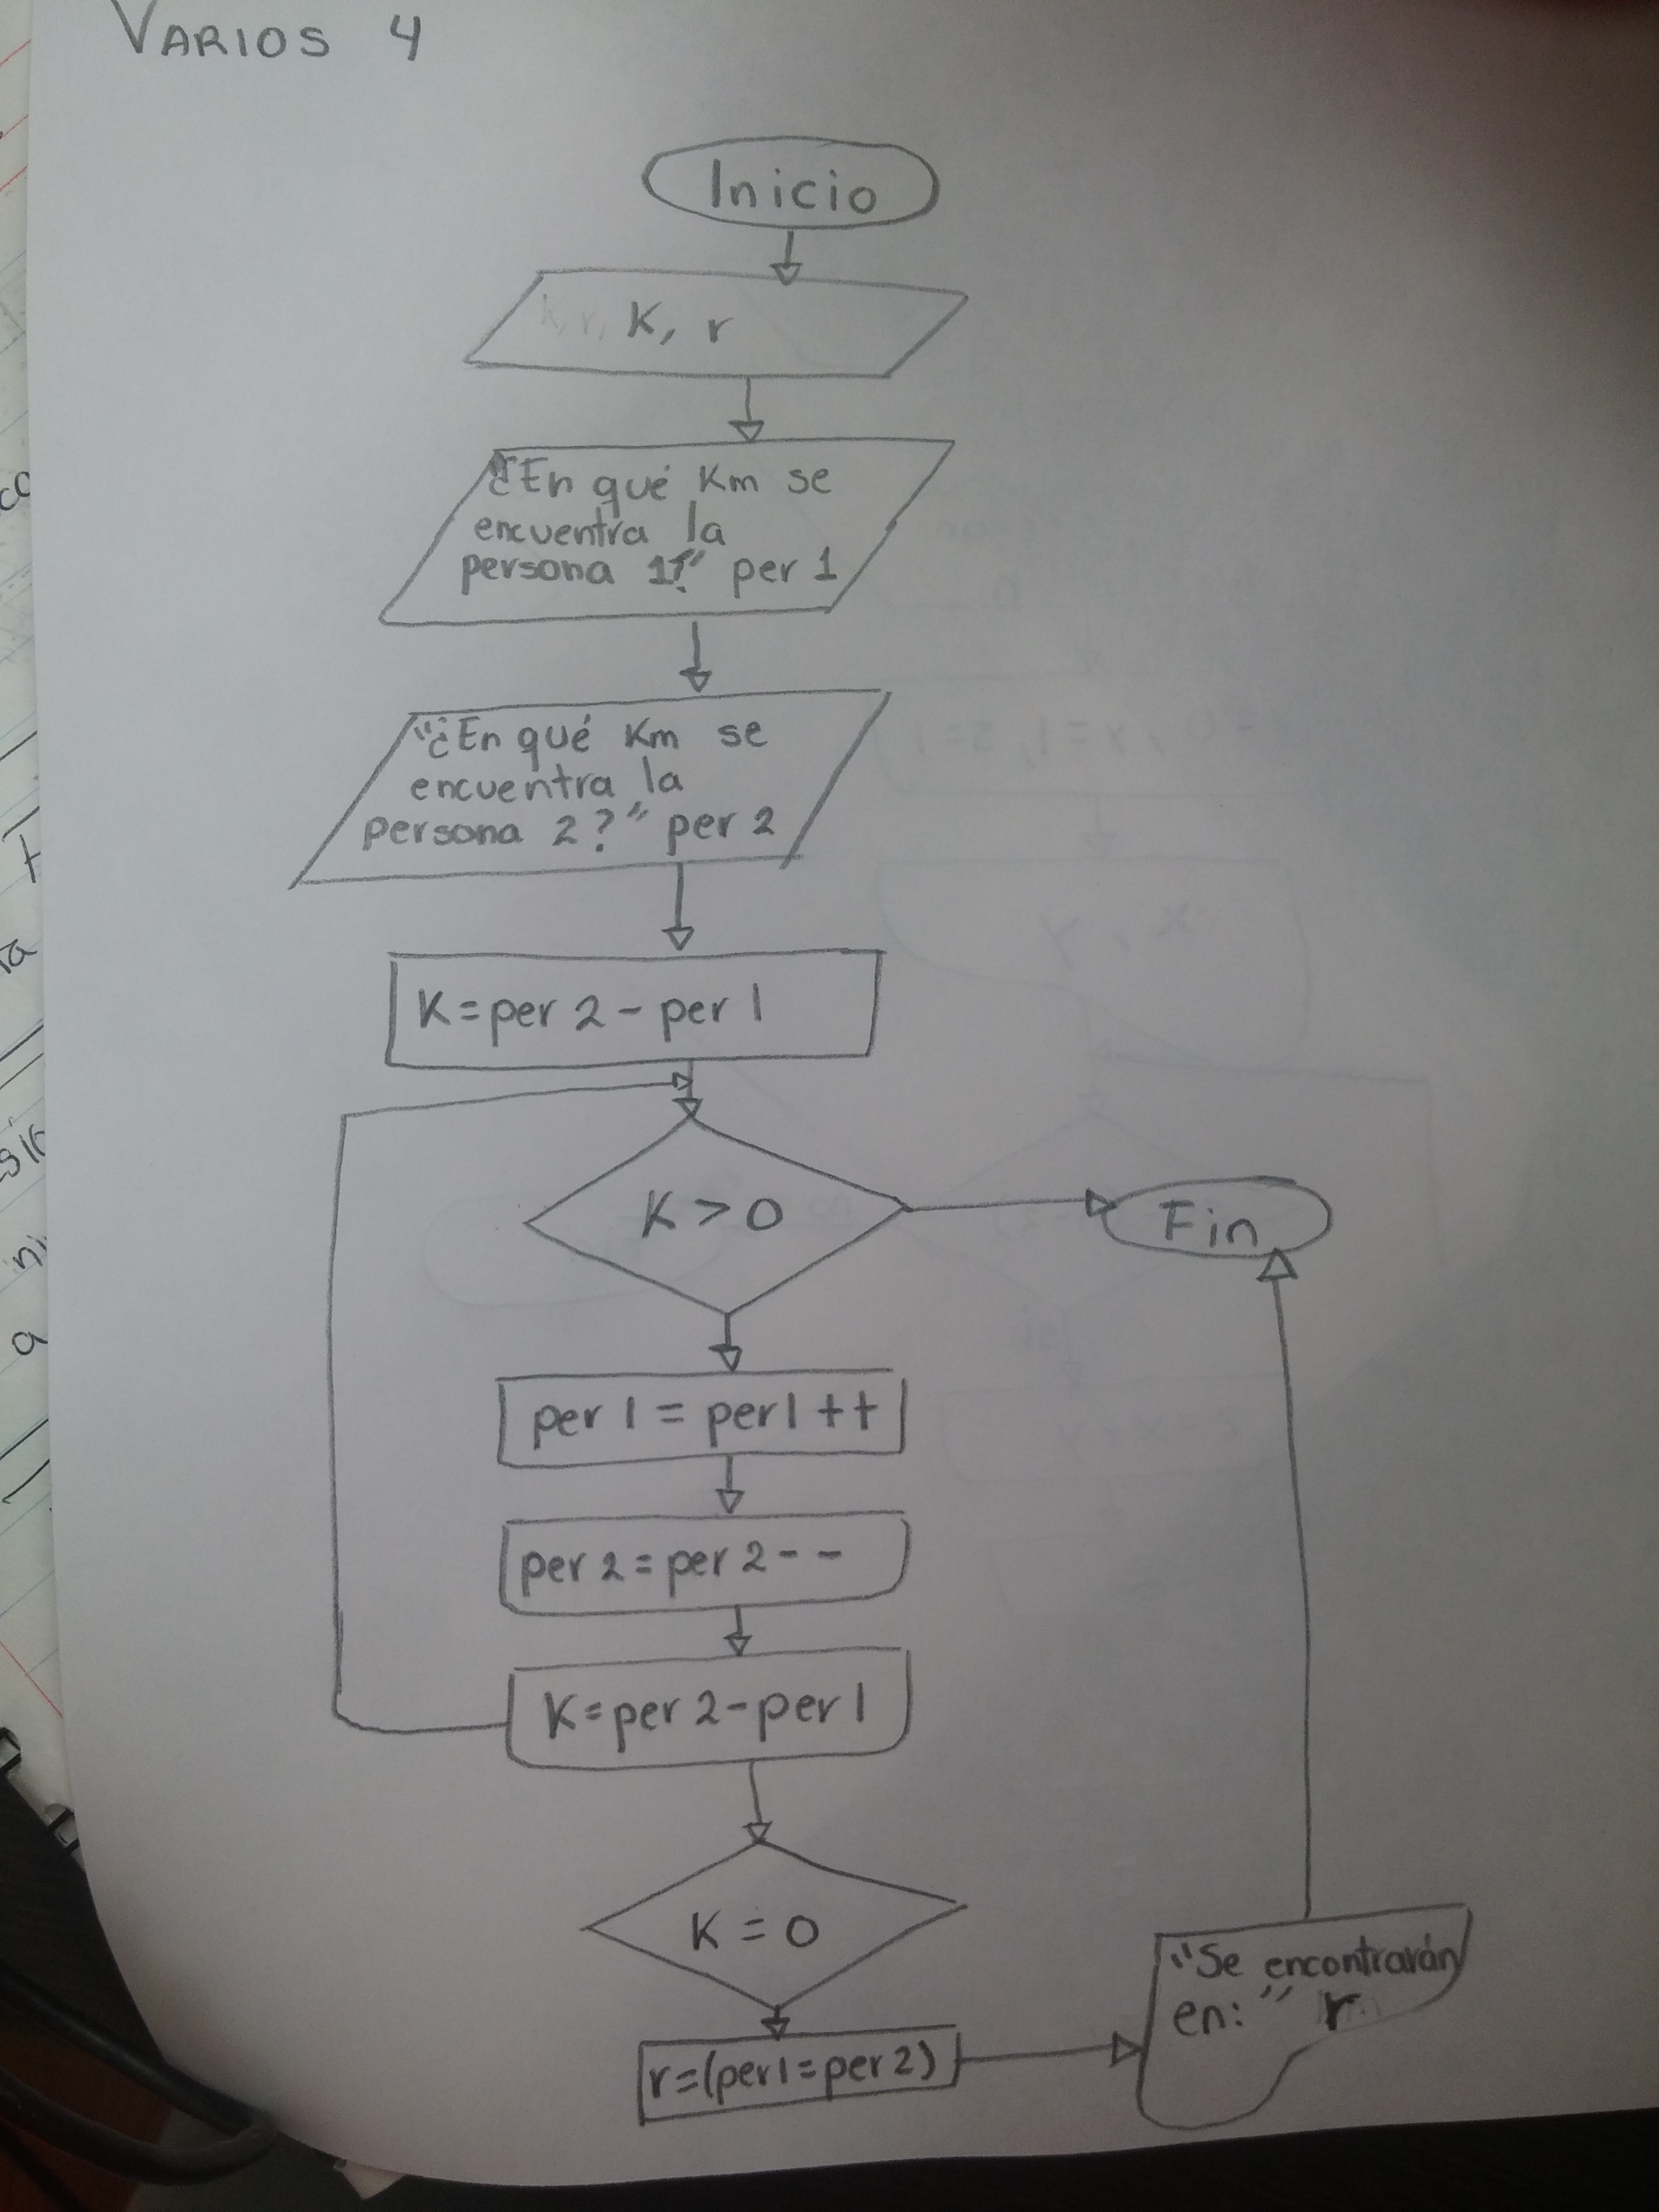 VARIOS 4
Inicio
K, r
"¿En qué Km se
encuentra la
persona 1?" per 1
"¿En qué Km se
encuentra la
persona 2?" per 2
K=per 2 - per 1
K > 0
Fin
per 1 = per1 ++
per 2 = per 2 - -
K=per 2-per 1
K = 0
r=(per1=per2)
"Se encontrarán
en:" r